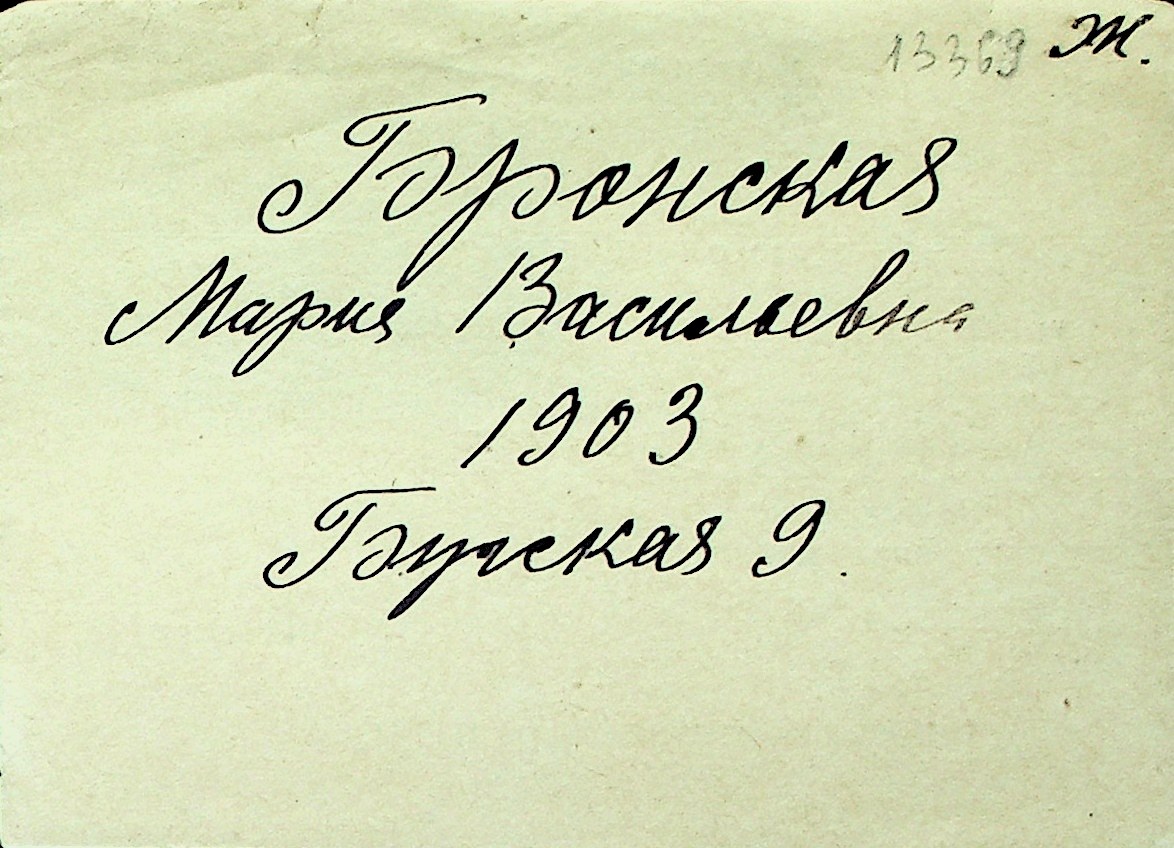 13369 Ж.
Бронская
Мария Васильевна
1903
Бугская 9.